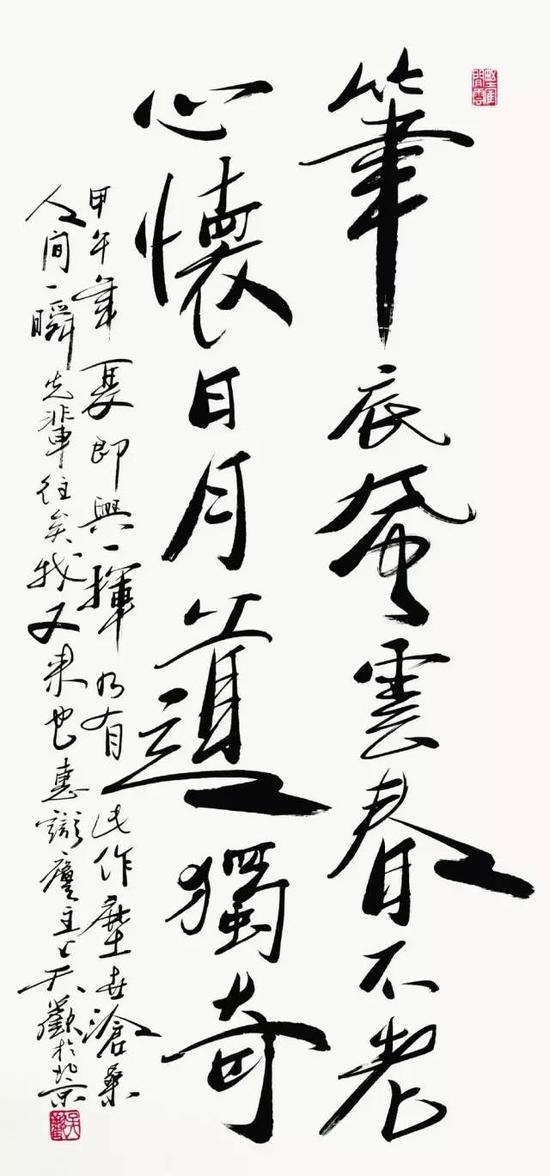 筆底風雲春不老
心懷日月道獨奇
甲午年夏即興一揮乃有此作塵世滄桑
人间一瞬先輩往矣我又来也惠謐廬主人天歡於北京